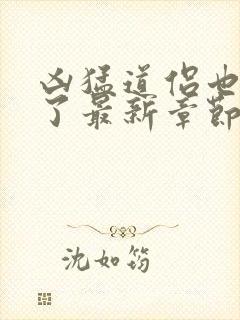 凶猛道侣也
了最新章节
沈如筠